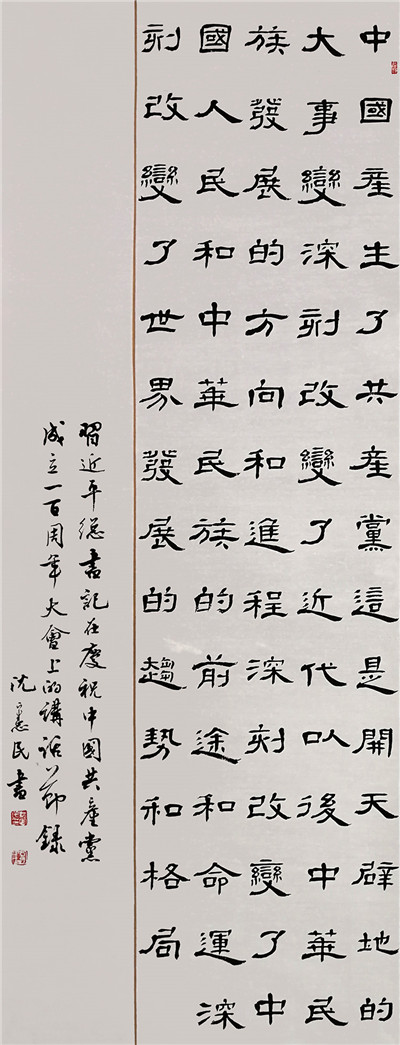 中國產生了共產黨這是開天辟地的
大事變深刻改變了近代以後中華民
族發展的方向和進程深刻改變了中
國人民和中華民族的前途和命運深
刻改變了世界發展的趨勢和格局
習近平總書記在慶祝中國共產黨
成立一百周年大會上的講話節錄
沈民書